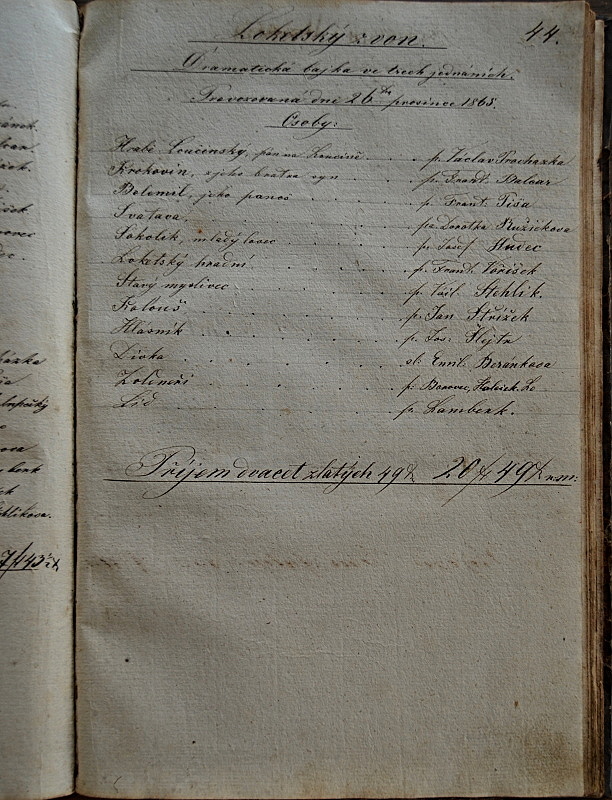 44.
Loketský zvon.
Dramatická bajka ve třech jednáních.
Provozovaná dni 26ho prosince 1865.
Osoby:
Hrabě Loučenský, pan na Loučině . . p. Václav Procházka
Krokovín, z jeho bratra syn . . p. Frant. Balcar
Bolemil, jeho panoš . . . p. Frant. Pisa
Svatava, . . . . pa Dorotka Ružičkova
Sokolík, mladý lovec . . . p. Josef Hudec
Loketský hradní . . . . p. Frant. Voříšek
Starý myslivec . . . . p. Stehlik.
Kalouš . . . . p. Jan Střížek
Hlasník . . . . p. Jos. Hejta
Dívka . . . . sl. Emil. Beránkova
Žoldneři . . . . p. Borovec,
Lid . . . . p. Lamberk.
Příjem dvacet zlatých 49 x 20 f 49 x r. m:
ázka
lopočký
ova
berk
ek
ehlíkova.
7 f 43 ½ x